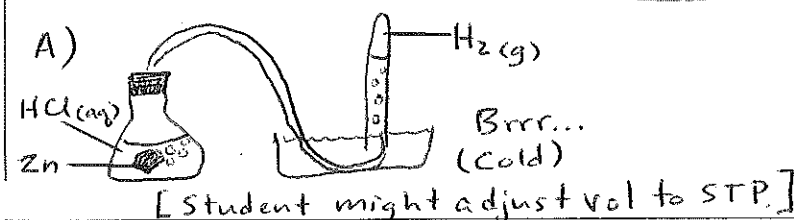 A)
H2(g)
HCl(aq)
Zn
Brrr...
(Cold)
[Student might adjust vol to STP.]